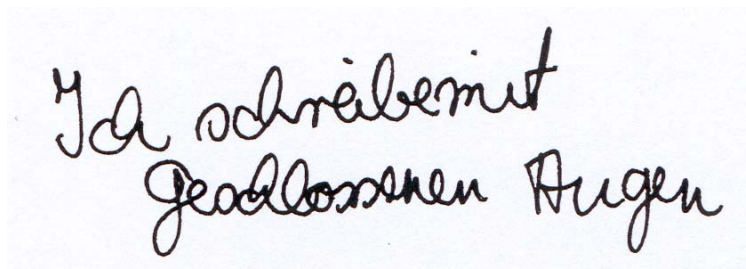 Ich schreibe mit
geschlossenen Augen